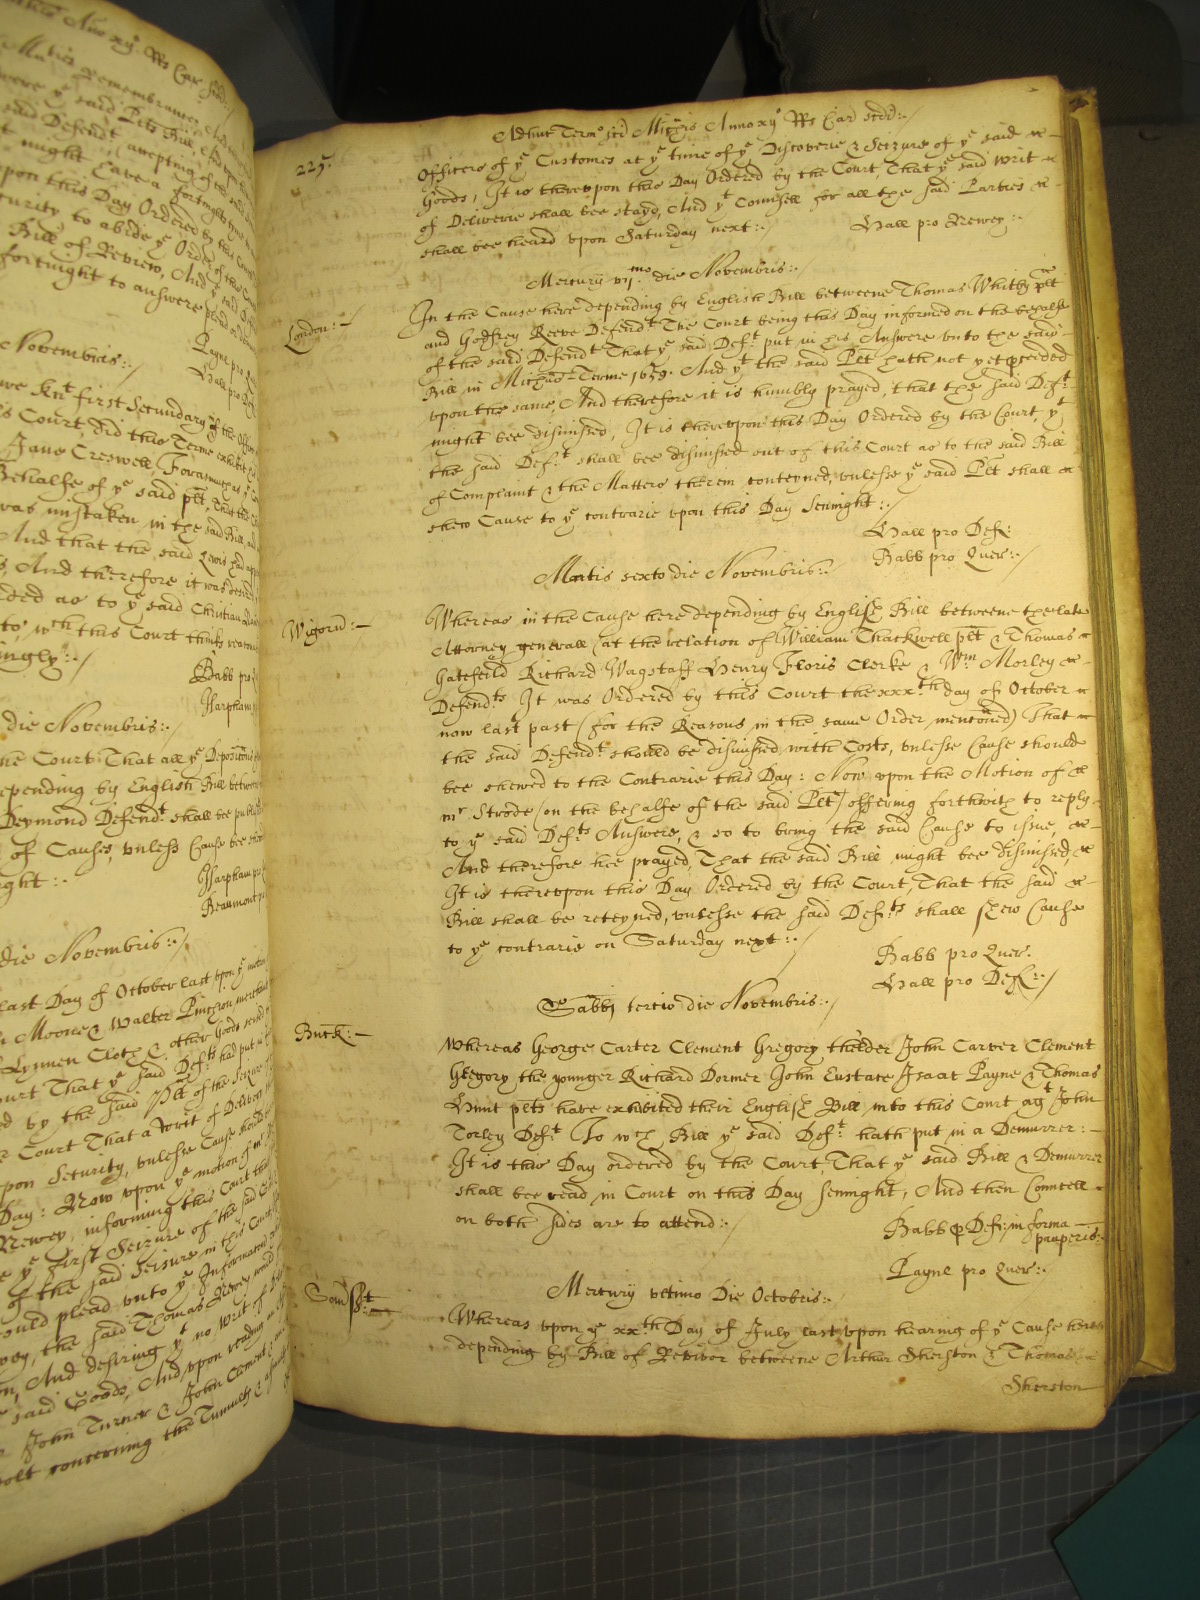 Matis Remembrancer And
were ye said Plts Bill And
said Defendt (accepting of the
might have a fortnights tyme
pon this Day Ordered by this Court
curity to abide ye Order of this Court
Bill of Review, And ye said
fortnight to answere plead or demurre
Payne pro
Hall pro
Novembris:./
we Knt first Secundary of the Office
s Court did this Terme exhibit
Jane Creswell, Forasmuch as
Behalfe of ye said plt, That the
was mistaken in the said Bill, and
And that the said Lewis had
, And therefore it was desired
ded as to ye said Christian
to, wch this Court thinks reasonable
ingly:./
Babb pro
Harpham
die Novembris:./
he Court That all ye Depositions
epending by English Bill betweene
Desmond Defendt shall be publisht
of Causes, unless Cause bee shewed
ight:.
Harpham pro
Beaumont
die Novembris:./
last Day of October last upon ye motion
Moone & Walter Pinchon merchant
Lynnen Cloth & other Goods seized
ourt That ye said Defts had put in
d by the said Plt of the Seizure
Court That a Writ of Delivery
pon Security, unlesse Cause should
Day: Now upon ye motion of mr
Newey, informing this Court that
e ye first Seizure of the said
of the said Seisure in this Court
ould plead unto ye Information
wey, the said Thomas Newey would
n, And desiring yt no Writ of
said Goods, And, upon reading
John Turner & John Clement
olt concerning the Tumults &
225.
Adhuc Termo sci Michis Anno xijo Rs Car scdi:./
Officers of ye Customes at ye time of ye Discoverie & Seizure of ye said
Goods, It is thereupon this Day Ordered by the Court, That ye said Writ
of Deliverie shall bee stayd, And yt Counsell for all the said Parties
shall bee heard upon Saturday next:./
Hall pro Newey:.
Mercurij vijmo die Novembris:.
London:-
In the Cause here depending by English Bill betweene Thomas Whitby plt
and Godfrey Reeve Defendt The Court being this Day informed on the behalfe
of the said Defendt That ye said Deft put in his Answere unto the said
Bill in Michas Terme 1659. And yt the said Plt hath not yet proceeded
upon the same, And therefore it is humbly prayed, that the said Deft
might bee dismissed, It is thereupon this Day Ordered by the Court, yt
the said Deft shall bee dismissed out of this Court as to the said Bill
of Complaint & the Matters therein conteyned, unlesse ye said Plt shall
shew Cause to ye contrarie upon this Day Senight:./
Hall pro Def:
Babb pro Quer:./
Martis sexto die Novembris:./
Wigorn:-
Whereas in the Cause here depending by English Bill betweene the late
Attorney generall (at the relation of William Thackwell plt & Thomas
Gatefeild Richard Wagstaff Henry Floris Clerke & Wm Morley
Defendts It was Ordered by this Court the xxxth day of October
now last past (for the Reasons in the same Order mentoned) That
the said Defendt should be dismissed with Costs, unlesse Cause should
bee shewed to the Contrarie this Day: Now upon the Motion of
mr Strode (on the behalfe of the said Plt) offering forthwith to reply
to ye said Defts Answere, & so to bring the said Cause to issue,
And therefore hee prayed, That the said Bill might bee dismissed,
It is thereupon this Day Ordered by the Court, That the said
Bill shall be reteyned, unlesse the said Defts shall shew Cause
to ye contrarie on Saturday next:./
Babb pro Quer.
Hall pro Def:./
Sabbi tercio die Novembris:./
Buck:-
Whereas George Carter Clement Gregory thelder John Carver Clement
Gregory the younger Richard Dormer John Eustace Isaac Payne & Thomas
Hunt plts have exhibited their English Bill into this Court agt John
Torley Deft To wch Bill ye said Deft hath put in a Demurrer:-
It is this Day ordered by the Court, That ye said Bill & Demurrer
shall bee read in Court on this Day Senight, And then Councell
on both sides are to attend:./
Babb p Def: in forma
pauperis:.
Payne pro Quer:.
Mercurij ultimo Die Octobris:.
Somsett:
Whereas upon ye xxth Day of July last upon hearing of ye Cause here
depending by Bill of Revivor betweene Arthur Sherston & Thomas
Sherston